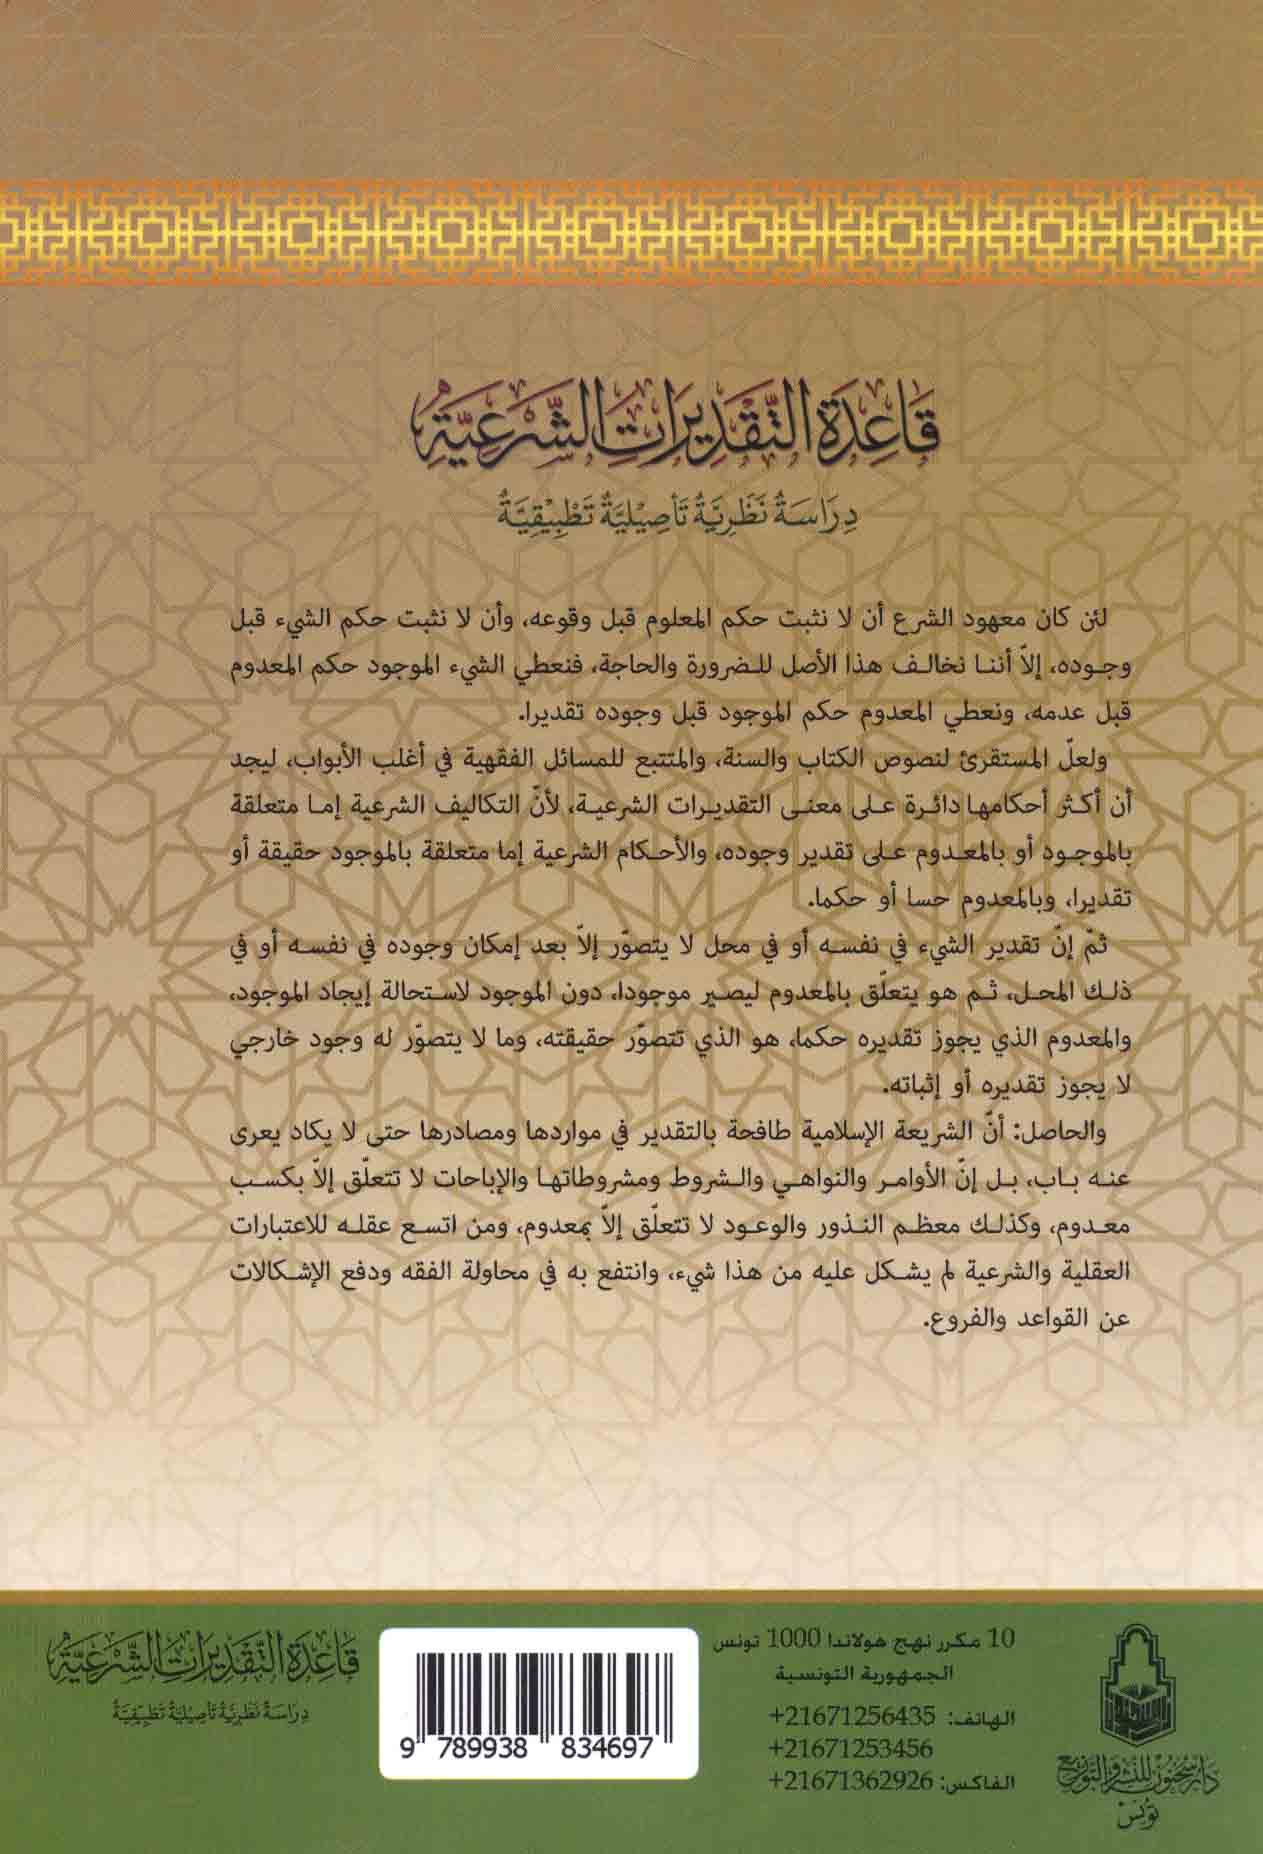 قَاعِدَةُ التَّقْدِيرَاتِ الشَّرْعِيَّةُ
دِرَاسَةٌ نَظَرِيَّةٌ تَأْصِيْلِيَّةٌ تَطْبِيْقِيَّةٌ
لئن كان معهود الشرع أن لا نثبت حكم المعلوم قبل وقوعه، وأن لا نثبت حكم الشيء قبل
وجوده، إلاّ أننا نخالف هذا الأصل للضرورة والحاجة، فنعطي الشيء الموجود حكم المعدوم
قبل عدمه، ونعطي المعدوم حكم الموجود قبل وجوده تقديرا.
ولعلّ المستقرئ لنصوص الكتاب والسنة، والمتتبع للمسائل الفقهية في أغلب الأبواب، ليجد
أن أكثر أحكامها دائرة على معنى التقديرات الشرعية، لأنّ التكاليف الشرعية إما متعلقة
بالموجود أو بالمعدوم على تقدير وجوده، والأحكام الشرعية إما متعلقة بالموجود حقيقة أو
تقديرا، وبالمعدوم حسا أو حكما.
ثمّ إنّ تقدير الشيء في نفسه أو في محل لا يتصوّر إلاّ بعد إمكان وجوده في نفسه أو في
ذلك المحل، ثم هو يتعلّق بالمعدوم ليصير موجودا، دون الموجود لاستحالة إيجاد الموجود،
والمعدوم الذي يجوز تقديره حكما، هو الذي تتصوّر حقيقته، وما لا يتصوّر له وجود خارجي
لا يجوز تقديره أو إثباته.
والحاصل: أنّ الشريعة الإسلامية طافحة بالتقدير في مواردها ومصادرها حتى لا يكاد يعرى
عنه باب، بل إنّ الأوامر والنواهي والشروط ومشروطاتها والإباحات لا تتعلّق إلاّ بكسب
معدوم، وكذلك معظم النذور والوعود لا تتعلّق إلاّ بمعدوم، ومن اتسع عقله للاعتبارات
العقلية والشرعية لم يشكل عليه من هذا شيء، وانتفع به في محاولة الفقه ودفع الإشكالات
عن القواعد والفروع.
10 مكرر نهج هولاندا 1000 تونس
الجمهورية التونسية
الهاتف: 21671256435+
21671253456+
الفاكس: 21671362926+
دار سحنون للنشر والتوزيع
تونس
9 789938 834697
قَاعِدَةُ التَّقْدِيرَاتِ الشَّرْعِيَّةُ
دِرَاسَةٌ نَظَرِيَّةٌ تَأْصِيْلِيَّةٌ تَطْبِيْقِيَّةٌ